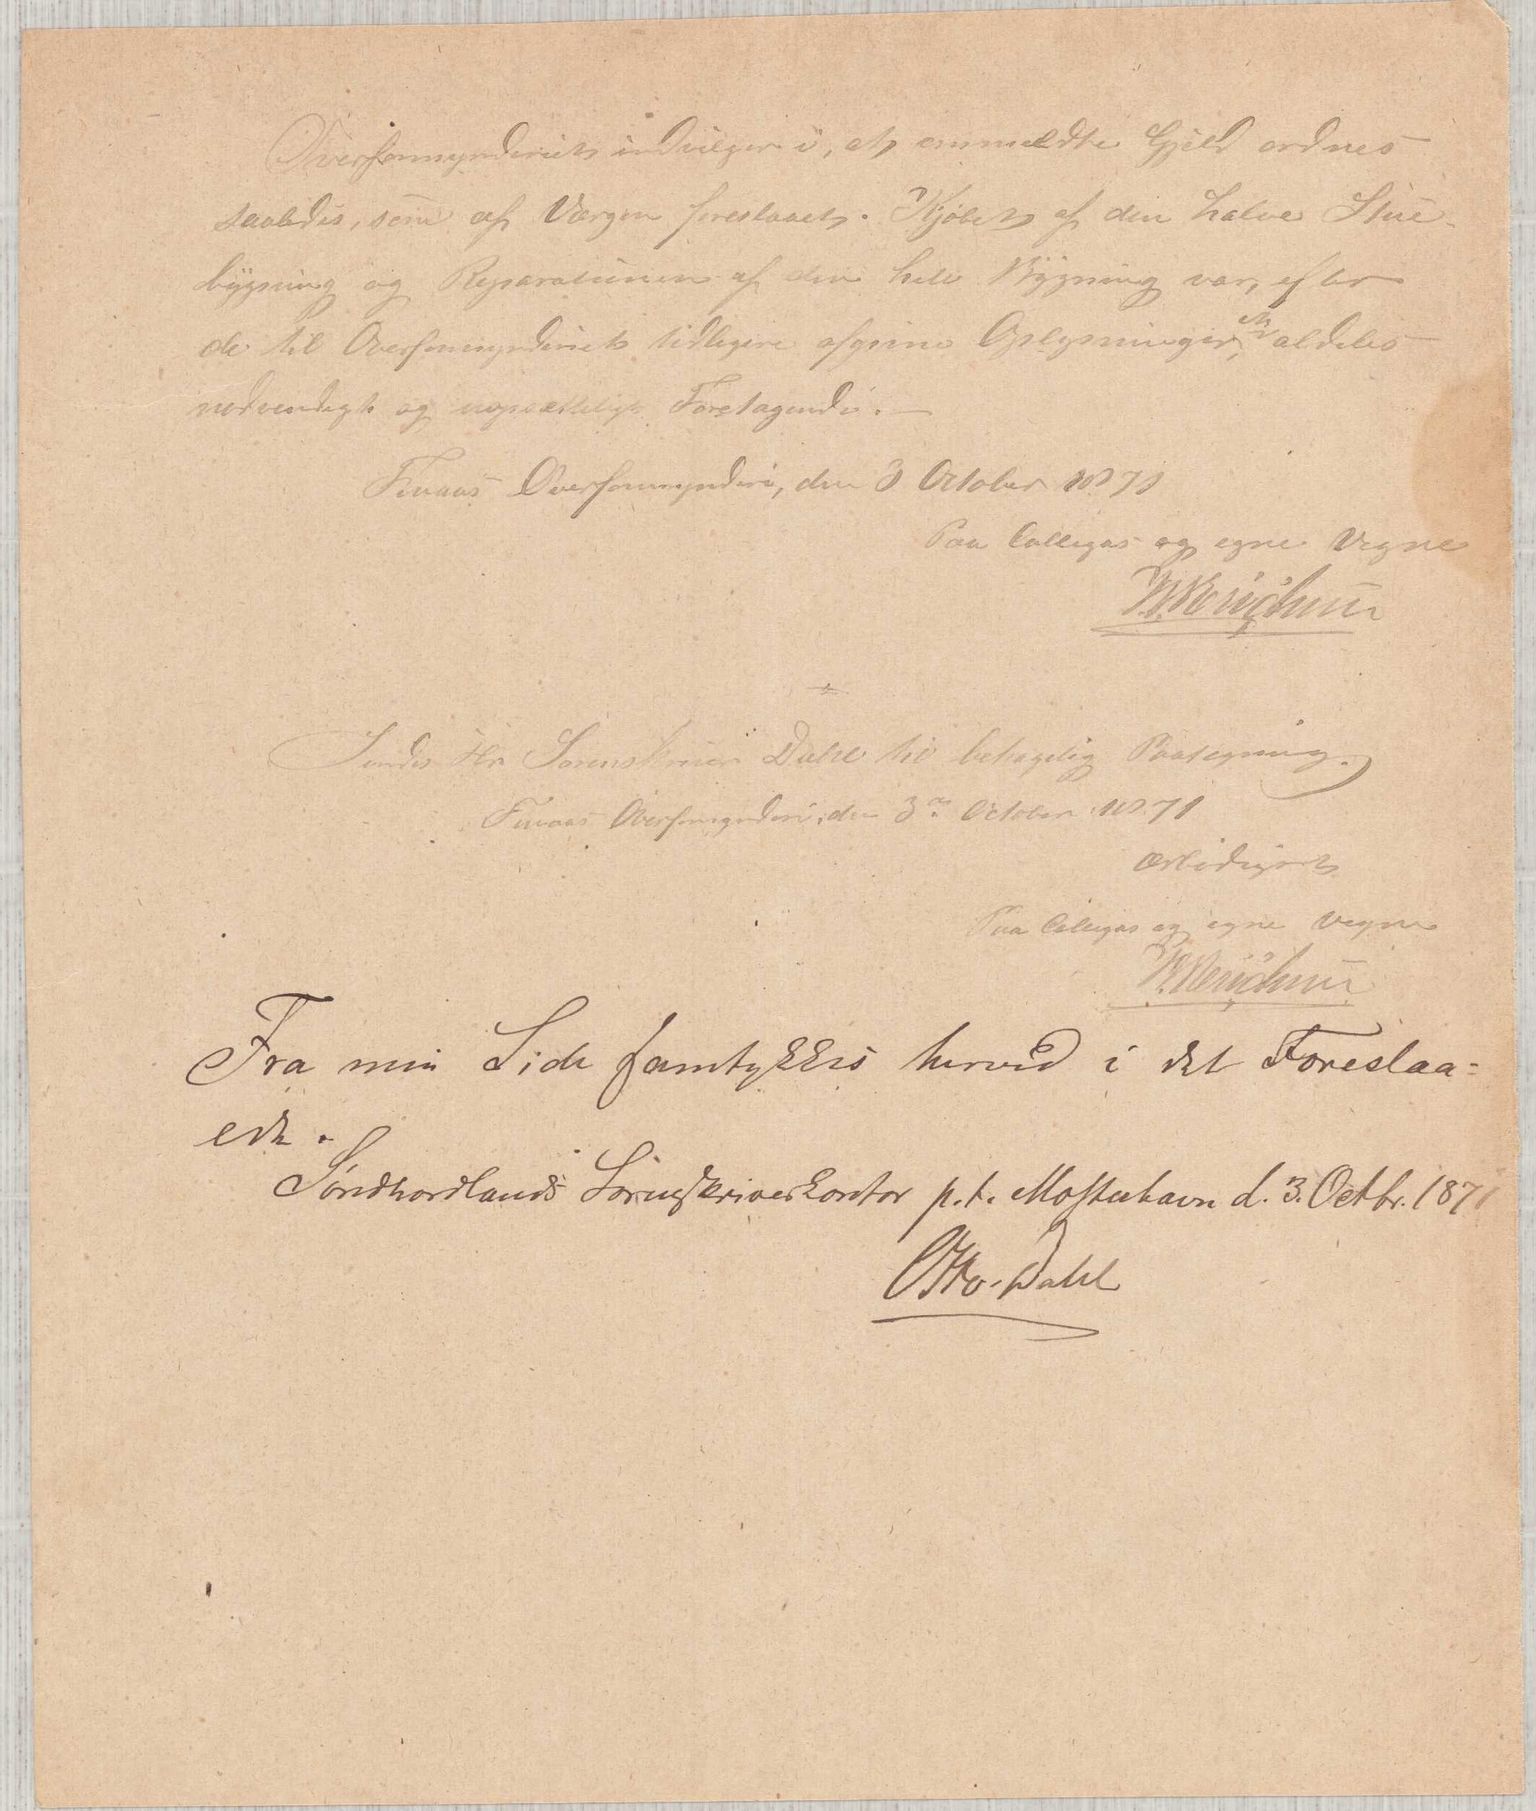 Overformynderiet indvilger i, at ommeldte Gjeld ordnes
saaledes, som af Værgen foreslaaet. Kjøbet af den halve Stue-
bygning og Reparationen af den hele Bygning var, efter
de til Overformynderiet tidligere afgivne Oplysninger, et aldeles
nødvendigt og uopsætteligt Foretagende. —
Finaas Overformynderi, den 3 October 1871
Paa Collegas og egne Vegne
Sendes Hr Sorenskriver Dahl til behagelig Paategning.
Finaas Overformynderi, den 3die October 1871
Ærbødigst
Paa Collegas og egne Vegne
Fra min Side samtykkes herved i det Foreslaa=
ede.
Søndhordlands Sorenskriverkontor p.t. Mosterhavn d. 3. Octbr. 1871
Otto Dahl